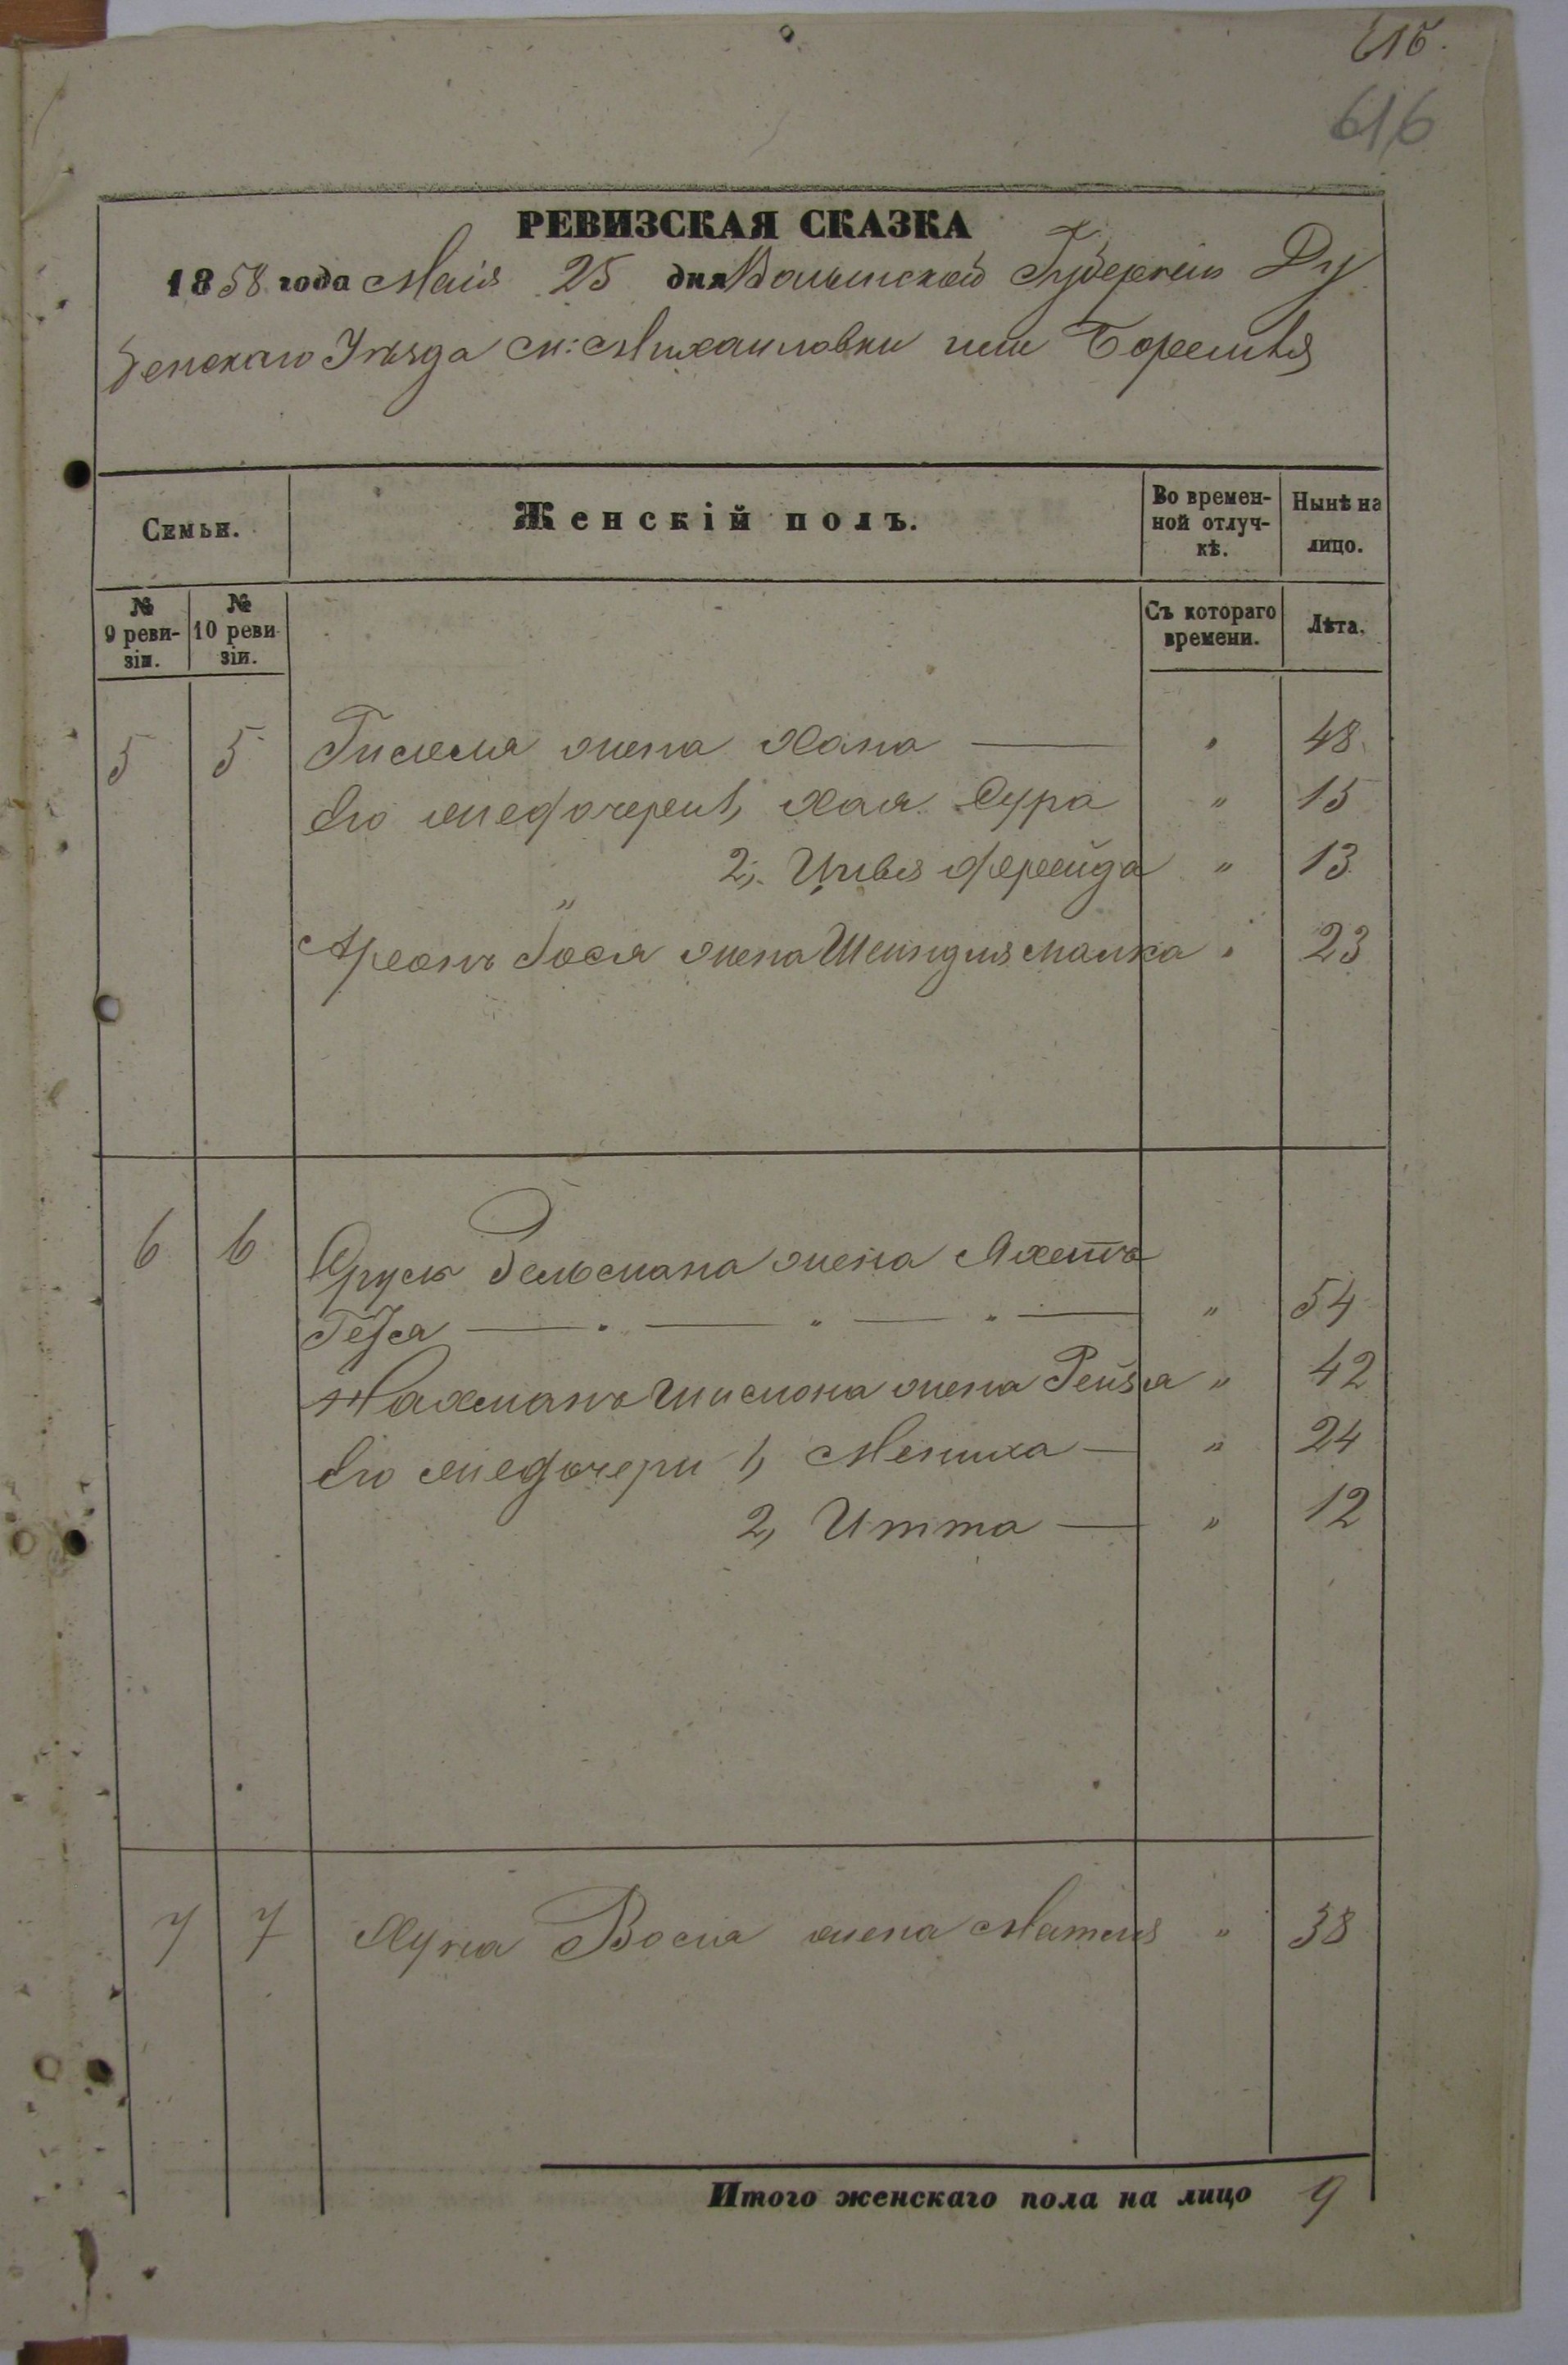 616.
616
РЕВИЗСКАЯ СКАЗКА
1858 года Маія 25 дня Волынской Губерніи Ду
бенскаго Уѣзда м: Михаиловки или Берестѣ
Семьи.
Женскій полъ.
Во времен-
ной отлуч-
кѣ.
Нынѣ на
лицо.
№
9 реви-
зіи.
№
10 реви
зіи.
Съ котораго
времени.
Лѣта.
5 5 жена Хана — " 48
Его дочери 1, Хая Сура " 15
2, Цивя Фрейда " 13
"
Ареонъ жена Шейндля Малка " 23
6 6 жена
— " — " — " — " 54
Нахманъ жена Рейзя " 42
Его дочери 1, Мениха — " 24
2, Итта — " 12
7 7 жена " 38
Итого женскаго пола на лицо 9